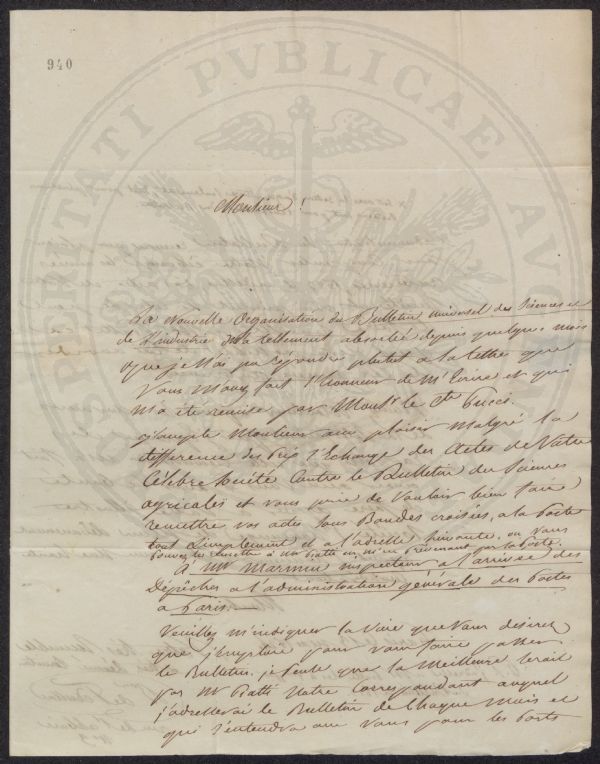 940
PROSPERITATI PVBLICAE AVG
Monsieur!
La nouvelle Organisation du Bulletin universel des Sciences et
de l'industrie m'a tellement absorbé depuis quelques mois
que je n'ai pu répondre plutot a la lettre que
Vous m'avez fait l'honneur de m'écrire et qui
m'a été remise par Monsr le Cte Pucci.
J'accepte Monsieur avec plaisir Malgré la
difference des Prix l'Echange des Actes de Votre
Célèbre société Contre le Bulletin des Sciences
agricoles et vous prie de Vouloir bien faire
remettre vos actes sous Bandes croisées, a la Poste
tout simplement et a l'adresse suivante, ou vous
pouvez les remettre à Mr Patti en m'en prevenant par la poste.
A Mr Marmin inspecteur a l'arrivée des
Dépêches a l'administration générale des Postes
a Paris.
Veuillez m'indiquer la Voie que Vous désirez
que j'emploie pour vous faire passer
le Bulletin. je pense que la Meilleure serait
par Mr Patti Notre Correspondant auquel
j'adresserai le Bulletin de Chaque Mois et
qui s'entendra avec Vous pour les Ports